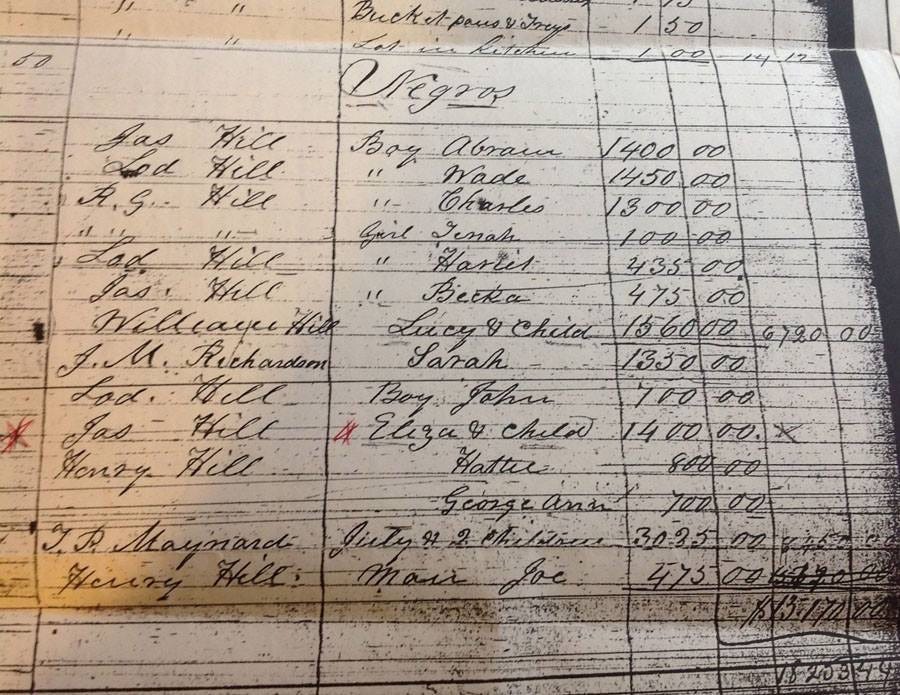 " "
Bucket pans & Trays 1 50
" " Lot in kitchen 1 00 14 12
50
Negros
Jas Hill Boy Abram 1400 00
Lod Hill " Wade 1450 00
R. G. Hill " Charles 1300 00
" " " Girl 100 00
Lod Hill " Hariet 435 00
Jas. Hill " Becka 475 00
William Hill Lucy & Child 1560 00 6720 00
J. M. Richardson Sarah 1350 00
Lod. Hill Boy John 700 00
Jas Hill Eliza & Child 1400 00. X
Henry Hill Hattie 800 00
George Ann 700 00
Maynard & 2 Children 3025 00
Henry Hill. Man Joe 475 00
$13170 00